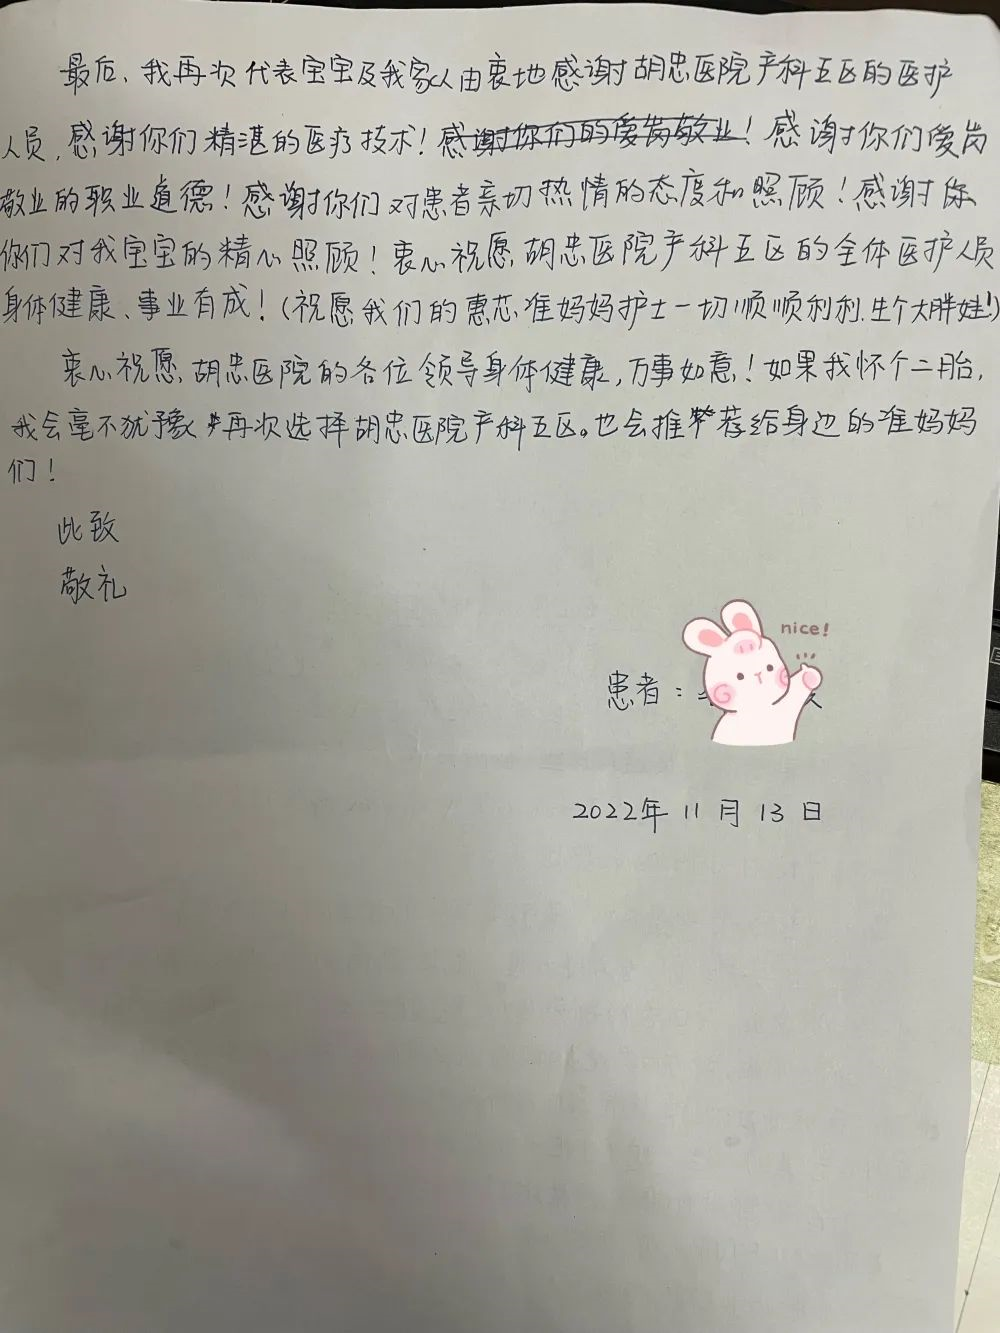 最后，我再次代表宝宝及我家人由衷地感谢胡忠医院产科五区的医护
人员，感谢你们精湛的医疗技术！感谢你们的爱岗敬业！感谢你们爱岗
敬业的职业道德！感谢你们对患者亲切热情的态度和照顾！感谢你
你们对我宝宝的精心照顾！衷心祝愿胡忠医院产科五区的全体医护人员
身体健康、事业有成！（祝愿我们的惠芯准妈妈护士一切顺顺利利，生个大胖娃！）
衷心祝愿胡忠医院的各位领导身体健康，万事如意！如果我怀个二胎，
我会毫不犹豫再次选择胡忠医院产科五区。也会推荐给身边的准妈妈
们！
此致
敬礼
nice!
患者：
2022年11月13日